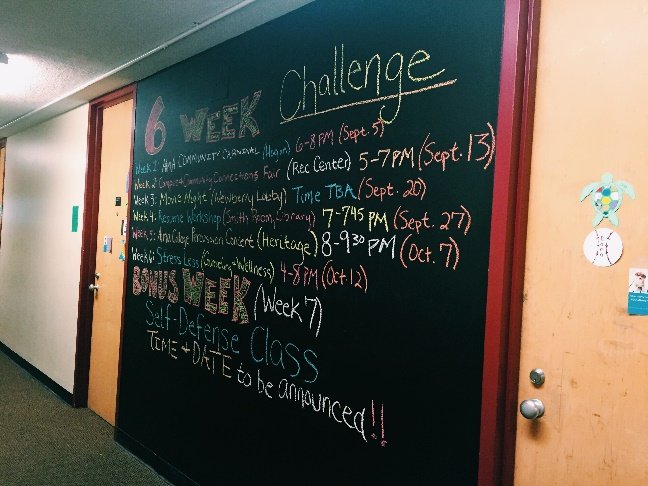 6 WEEK Challenge
Week 1: Alma COMMUNITY CARNIVAL (Hogan) 6-8 PM (Sept. 5)
Week 2: Campus + Community Connections Fair (Rec Center) 5-7PM (Sept. 13)
Week 3: Movie Night (Newberry Lobby) Time TBA (Sept. 20)
Week 4: Resume Workshop (Smith Room, Library) 7-7:45 PM (Sept. 27)
Week 5: Alma College Percussion Concert (Heritage) 8-9:30 PM (Oct. 7)
Week 6: Stress Less (Counseling + Wellness) 4-8 PM (Oct. 12)
BONUS WEEK (Week 7)
Self-Defense Class
TIME + DATE to be announced!!